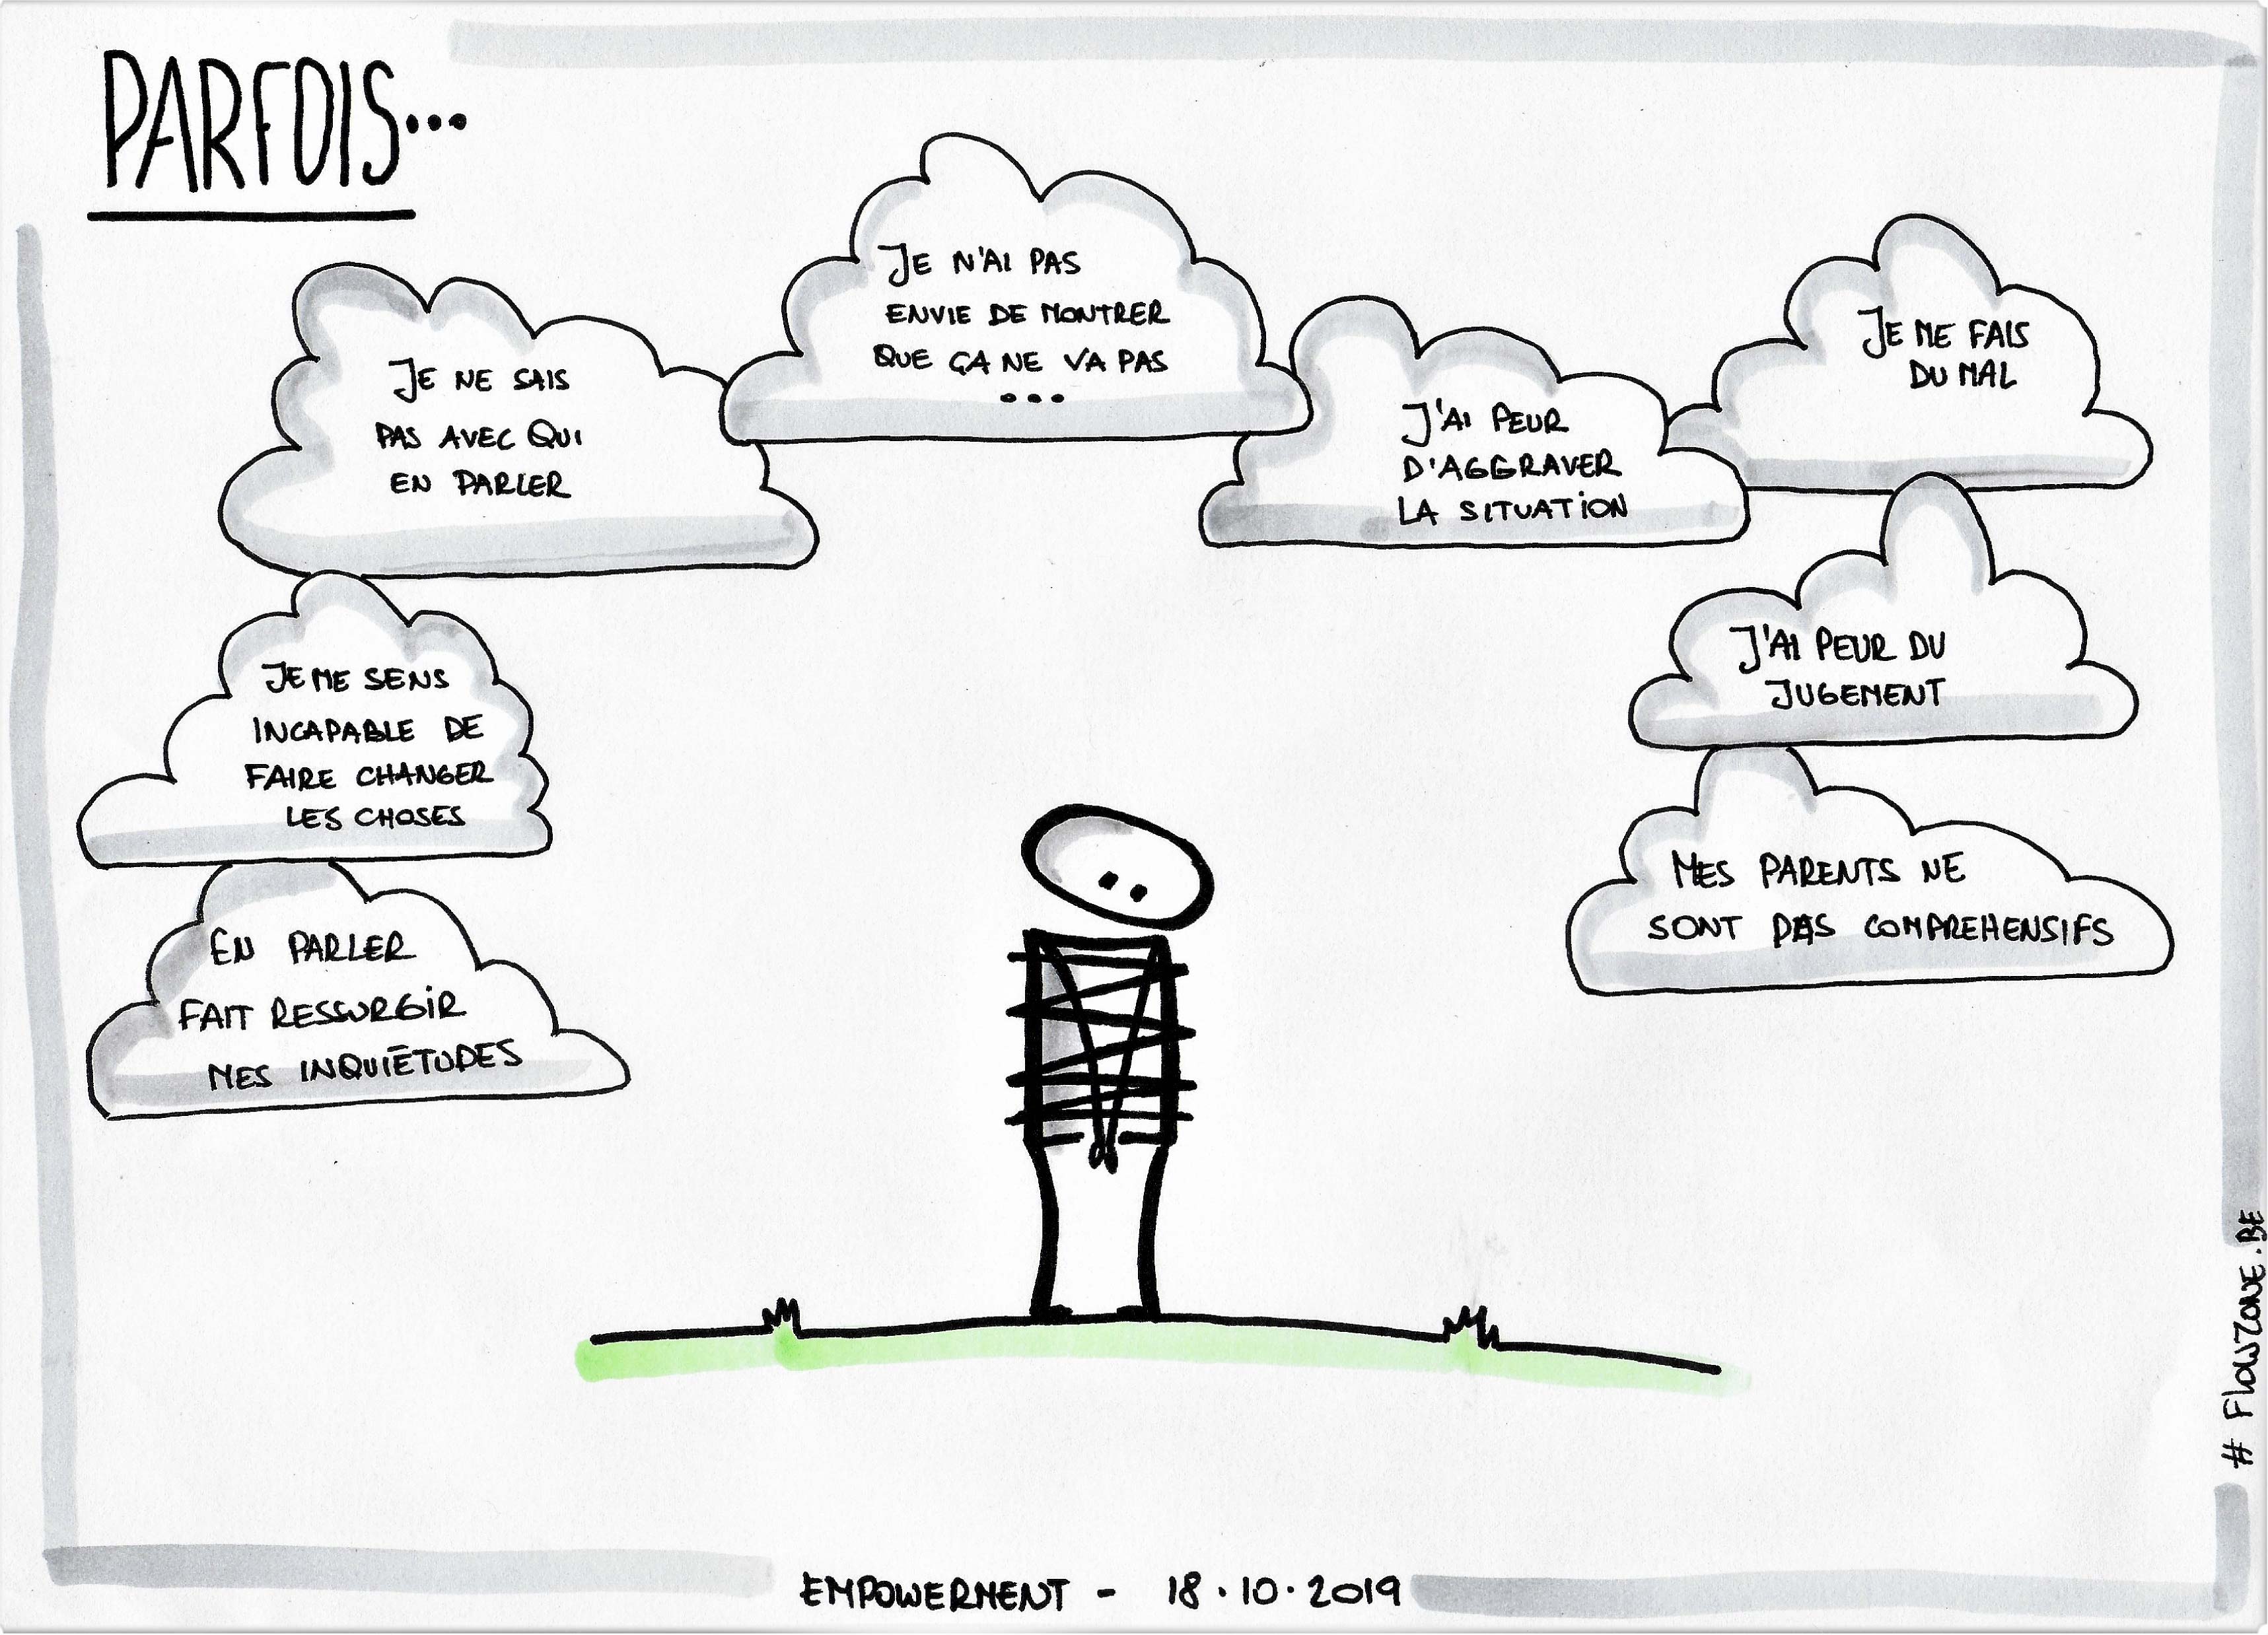 PARFOIS...
JE NE SAIS
PAS AVEC QUI
EN PARLER
JE N'AI PAS
ENVIE DE MONTRER
QUE ÇA NE VA PAS
...
J'AI PEUR
D'AGGRAVER
LA SITUATION
JE ME FAIS
DU MAL
JE ME SENS
INCAPABLE DE
FAIRE CHANGER
LES CHOSES
J'AI PEUR DU
JUGEMENT
EN PARLER
FAIT RESSURGIR
MES INQUIÉTUDES
MES PARENTS NE
SONT PAS COMPREHENSIFS
# FLOWZONE.BE
EMPOWERMENT - 18.10.2019